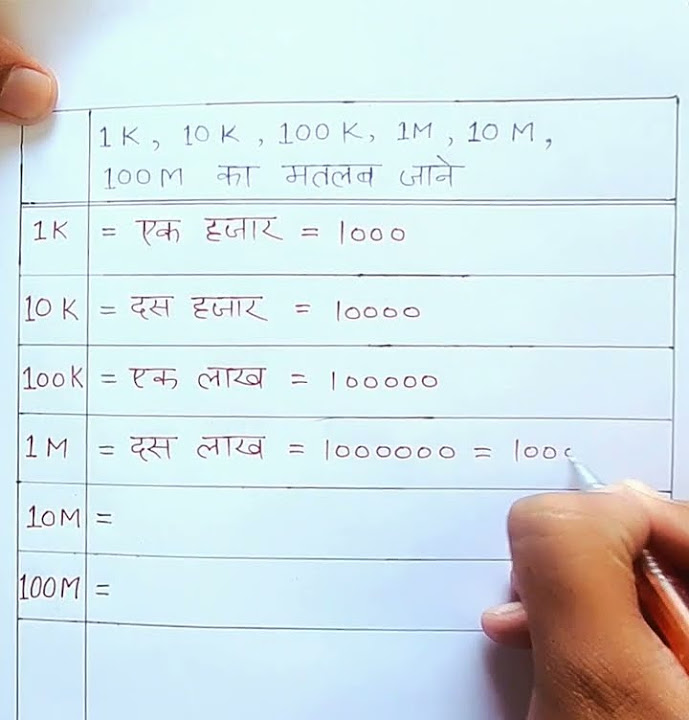 1K, 10K, 100K, 1M, 10M,
100M का मतलब जाने
1K = एक हजार = 1000
10K = दस हजार = 10000
100K = एक लाख = 100000
1M = दस लाख = 1000000 = 100
10M =
100M =